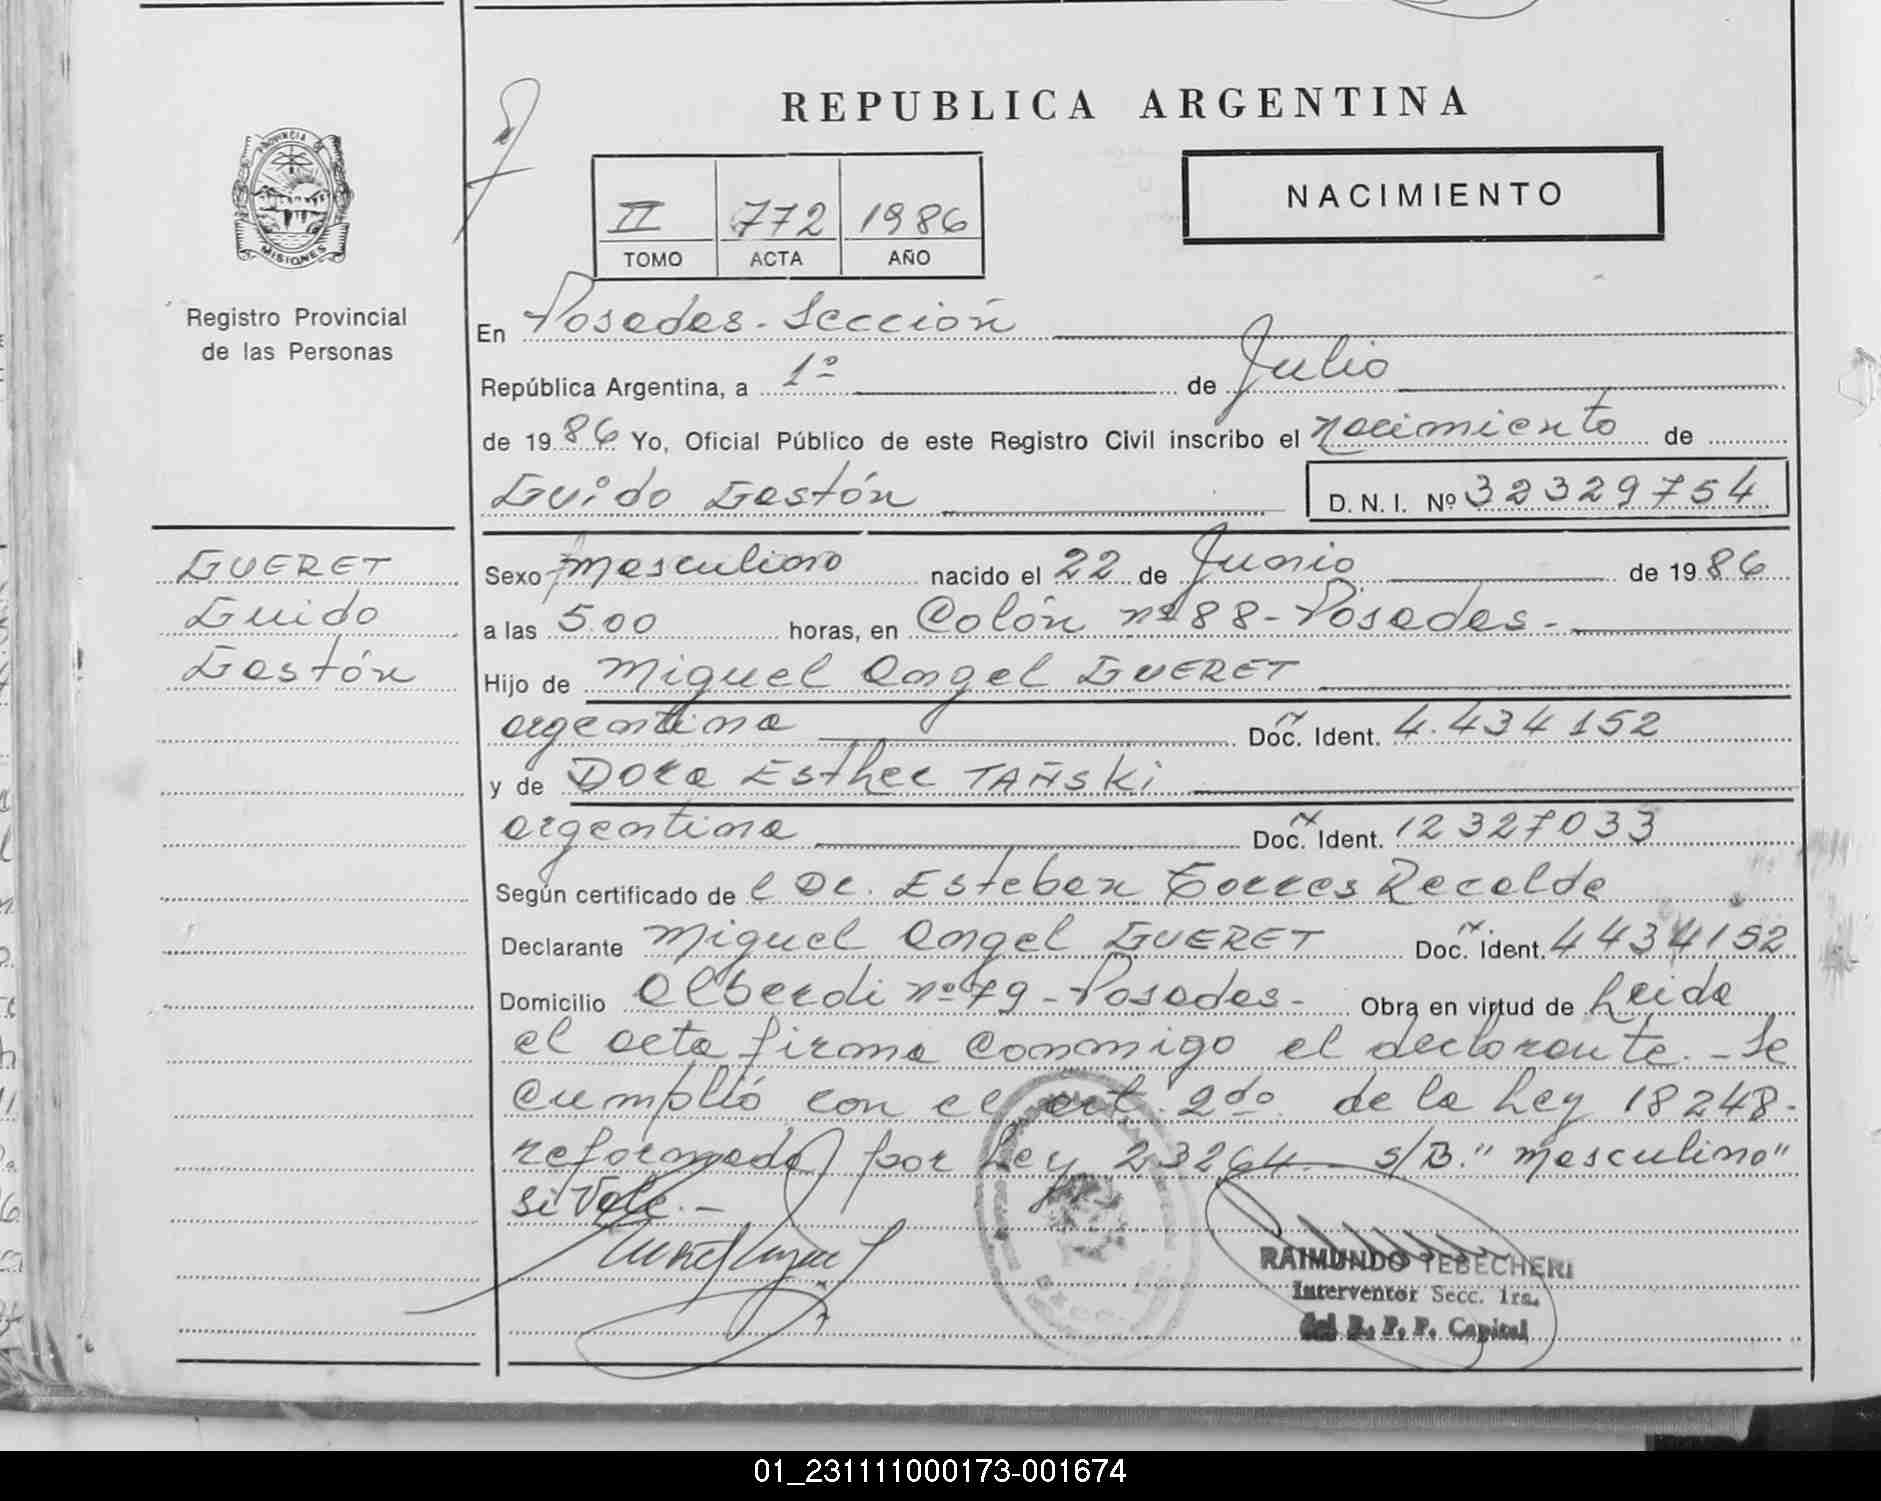 REPUBLICA ARGENTINA
PROVINCIA DE
MISIONES
Registro Provincial
de las Personas
II 772 1986
TOMO ACTA AÑO
NACIMIENTO
En Posadas - Sección
República Argentina, a 1º de Julio
de 1986 Yo, Oficial Público de este Registro Civil inscribo el nacimiento de
Guido Gastón D.N.I. Nº 32329754
GUERET
Guido
Gastón
Sexo masculino nacido el 22 de Junio de 1986
a las 5.00 horas, en Colón nº 88 - Posadas -
Hijo de Miguel Angel GUERET
argentina Doc. Ident. 4.434 152
y de Dora Esther TAÑSKi
argentina Doc. Ident. 12327033
Según certificado de l Dr. Esteban Torres Recalde
Declarante Miguel Angel GUERET Doc. Ident. 4434152
Domicilio Alberdi nº 79 - Posadas - Obra en virtud de Leida
el acta firma conmigo el declarante. - Se
cumplió con el art. 2do. de la Ley 18248 -
reformada por Ley 23264. - s/B. "masculino"
si Vale. -
RAIMUNDO TEBECHERI
Interventor Secc. 1ra.
del R. P. P. Capital
01_231111000173-001674